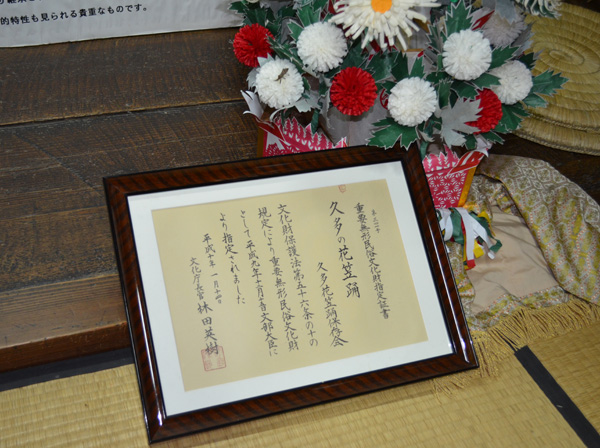 的特性も見られる貴重なものです。
重要無形民俗文化財指定証書
久多の花笠踊
久多花笠踊保存会
文化財保護法第五十六条の十の
規定により重要無形民俗文化財
として平成九年十二月十五日文部大臣に
より指定されました
平成十年一月十四日
文化庁長官 林田英樹